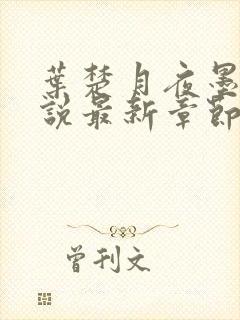 葉楚月夜墨
說最新章節
曾刊文